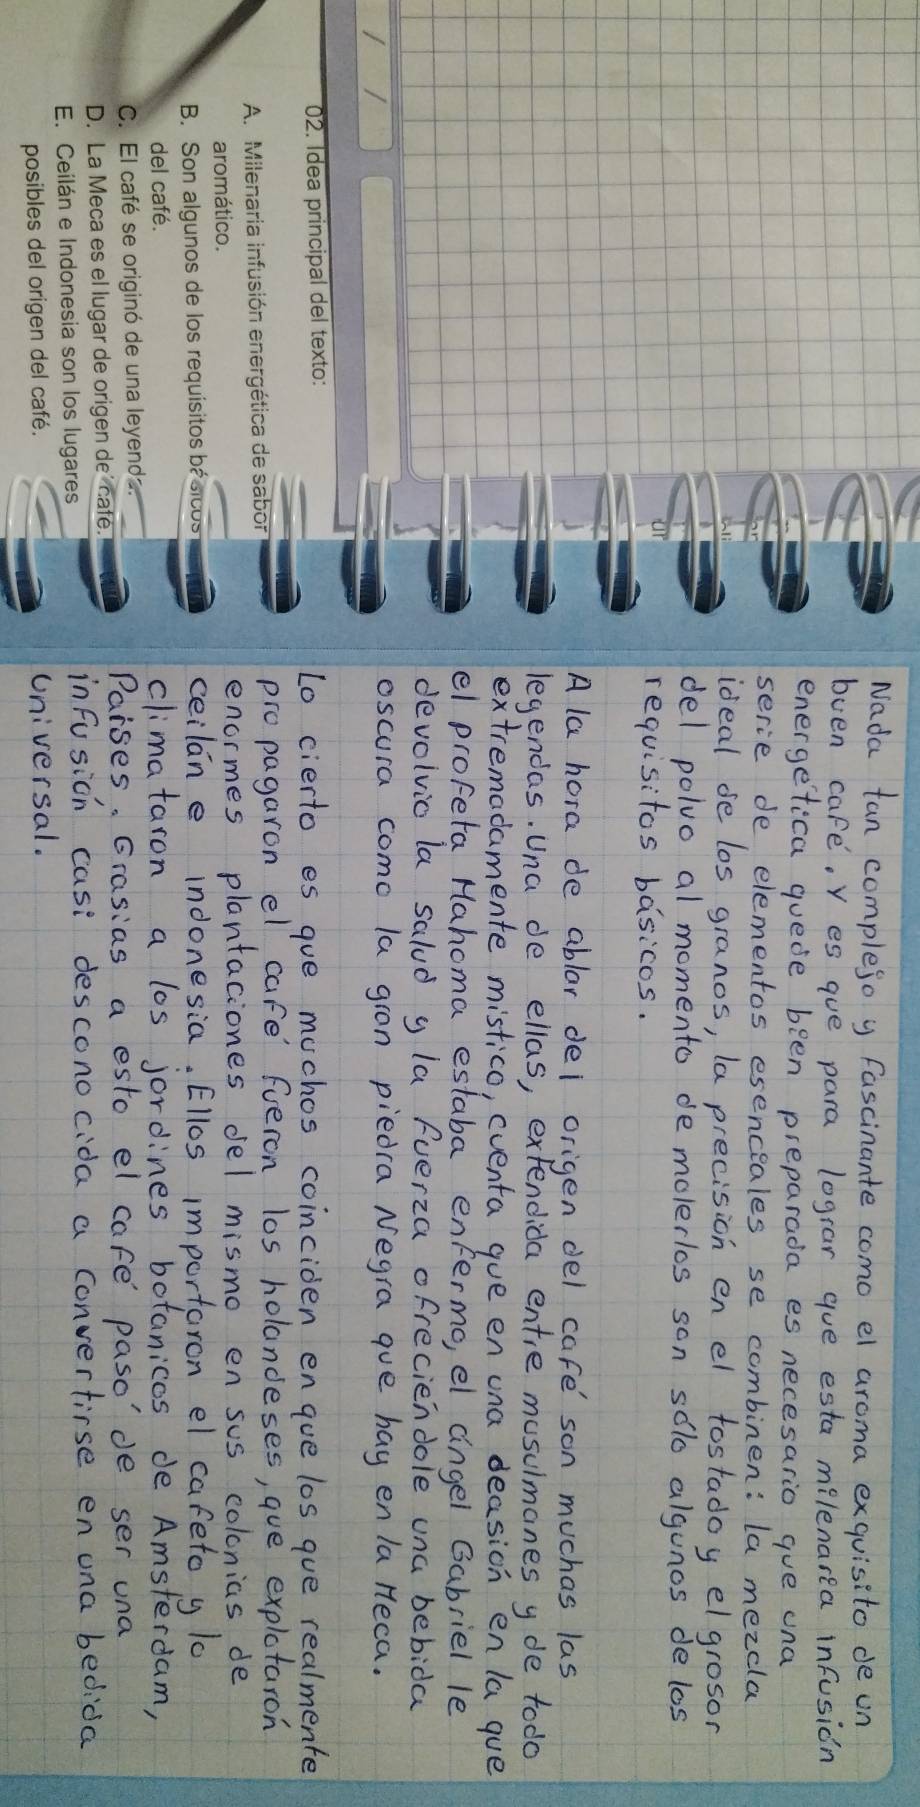 Nada tan complejo y fascinante como el aroma exquisito de un
buen café. Y es que para lograr que esta milenaria infusión
energética quede bien preparada es necesario que una
serie de elementos esenciales se combinen: la mezcla
ideal de los granos, la precisión en el tostado y el grosor
del polvo al momento de molerlos son sólo algunos de los
requisitos básicos.
A la hora de ablar del origen del café son muchas las
legendas. Una de ellas, extendida entre musulmanes y de todo
extremadamente mistico, cuenta que en una oeasión en la que
el profeta Mahoma estaba enfermo, el ángel Gabriel le
devolvio la salud y la fuerza ofreciéndole una bebida
oscura como la gran piedra Negra que hay en la Meca.
Lo cierto es que muchos coinciden en que los que realmente
propagaron el café fueron los holandeses, que explotarón
enormes plantaciones del mismo en sus colonias de
ceilán e indonesia. Ellos importaron el cafeto y lo
climataron a los jardines botanicos de Amsterdam,
Paises. Grasias a esto el café paso' de ser una
infusión casi desconocida a convertirse en una bedida
universal.
02. Idea principal del texto:
A. Milenaria infusión energética de sabor
aromático.
B. Son algunos de los requisitos básicos
del café.
C. El café se originó de una leyenda.
D. La Meca es el lugar de origen de café.
E. Ceilán e Indonesia son los lugares
posibles del origen del café.